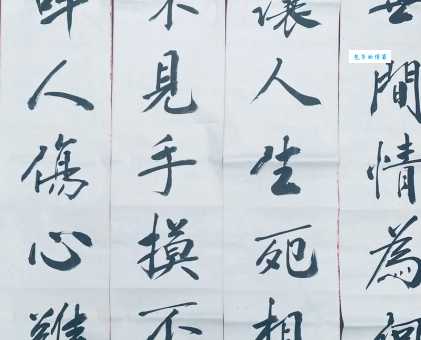 世間情為何
讓人生死相
不見手摸不
人傷心難